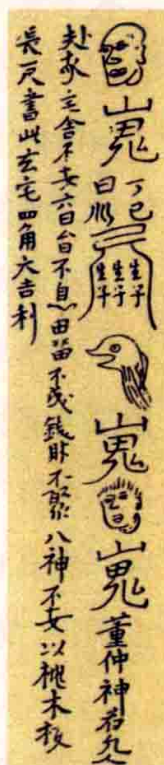 山鬼
丁巳
日
生子 生子 生子
山鬼
山鬼
董仲神符凡人
家宅舍不安六畜不息田苗不成錢財不聚八神不安以桃木板
長尺書此玄宅四角大吉利